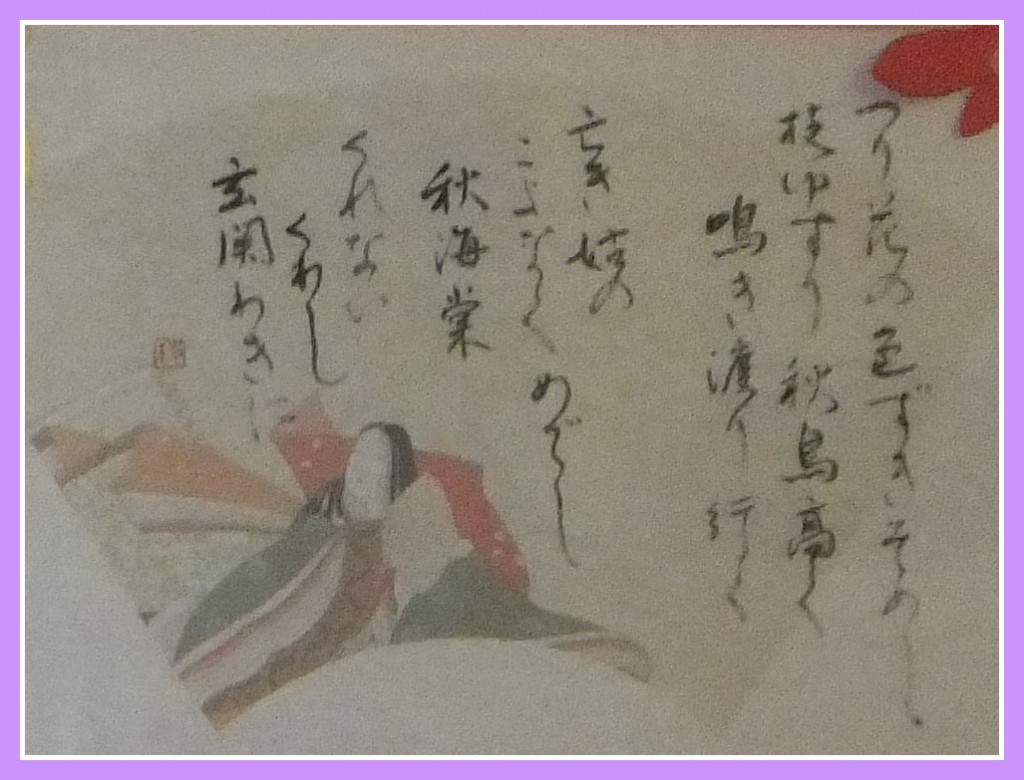 つり花の色ずきそめし
枝ゆすり秋鳥高く
鳴き渡り行く
亡き姑の
ことなくめでし
秋海棠
くれない
くわし
玄関わきに